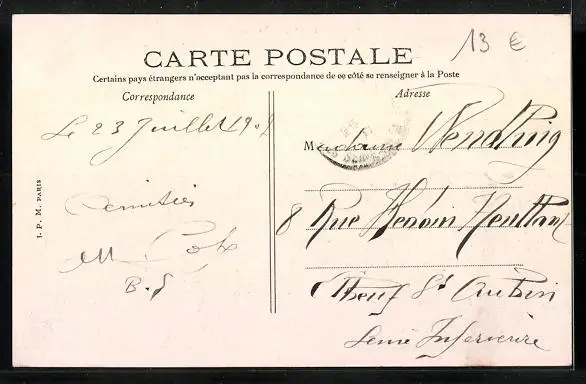 13 €
CARTE POSTALE
Certains pays étrangers n'acceptent pas la correspondance de ce côté se renseigner à la Poste
Correspondance
Adresse
Le 23 Juillet 190
Amitiés
M
B. S
I. P. M. PARIS
Madame Wendling
8 Rue
St Aubin
Seine Inferieure